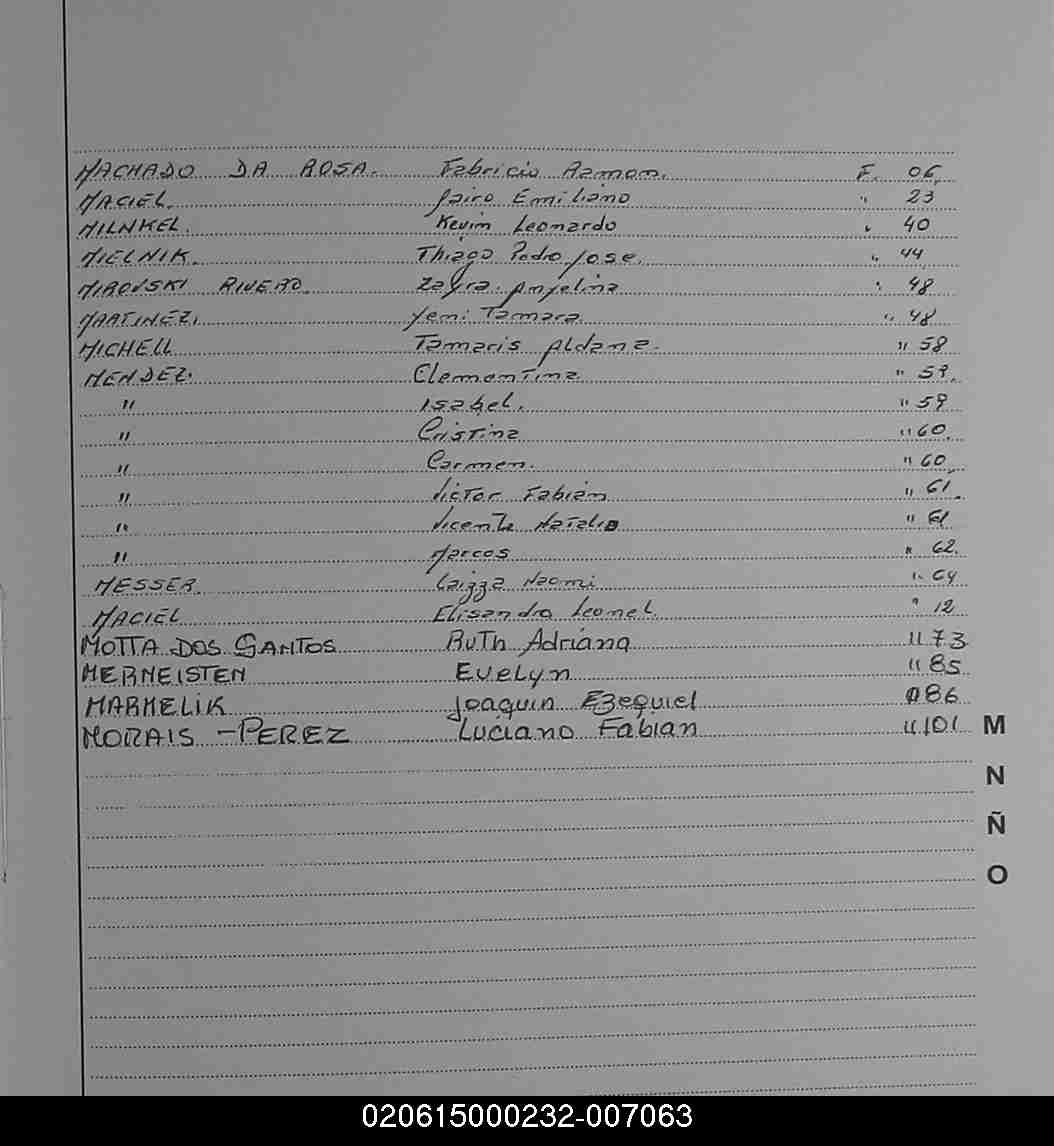 MACHADO DA ROSA. Fabricio Ramon. F. 06.
MACIEL. Jairo Emiliano " 23
MILNKEL. Kevin Leonardo " 40
MIELNIK. Thiago Pedro Jose. " 44
MIROVSKI RIVERO. Zayra Anjelina " 48
MARTINEZ. Yemi Tamara. " 48
MICHELL Tamaris Aldana. " 58
MENDEZ. Clementina " 59.
" Isabel. " 59
" Cristina " 60.
" Carmen. " 60.
" Victor Fabian " 61.
" Vicente Natalio " 61
" Marcos " 62.
MESSER. Naomi " 64
MACIEL Elisandro Leonel. " 12
MOTTA DOS SANTOS RUTH Adriana " 73
MERMEISTEN Evelyn " 85
MARMELIK Joaquin Ezequiel " 86
MORAIS - PEREZ Luciano Fabian " 101
M
N
Ñ
O
020615000232-007063